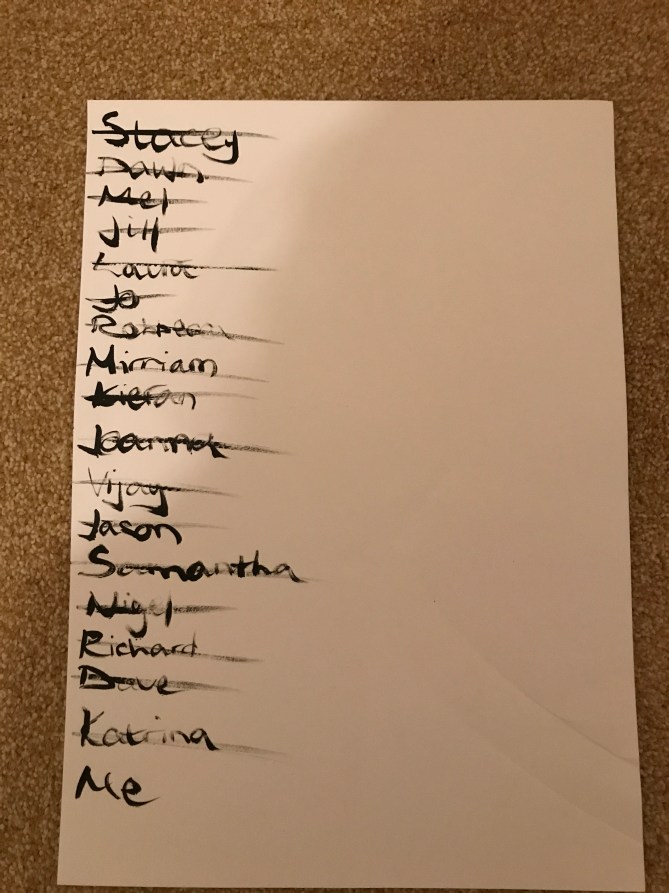 Stacey
Dawn
Mel
Jill
Laura
Jo
Mirriam
Kieran
Joanna
Vijay
Jason
Samantha
Nigel
Richard
Dave
Katrina
Me